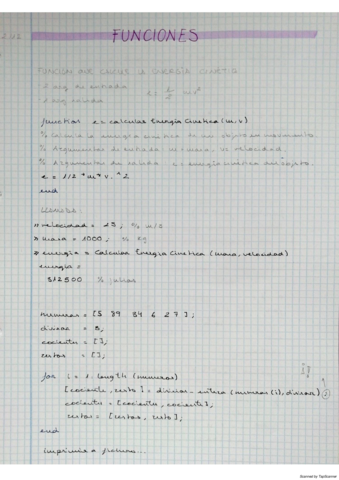 FUNCIONES
FUNCIÓN QUE CALCULE LA ENERGÍA CINÉTICA
2 arg de entrada
1 arg salida
e = 1/2 mv²
function e = calcular Energia Cinetica (m, v)
% Calcula la energía cinética de un objeto en movimiento.
% Argumentos de entrada: m = masa, v = velocidad.
% Argumentos de salida: e = energía cinética del objeto.
e = 1/2 * m * v .^2
end
>> velocidad = 25; % m/s
>> masa = 1000; % Kg
>> energia = Calcular Energia Cinetica (masa, velocidad)
energia =
312500 % julios
numeros = [5 89 34 6 27];
divisor = 5;
cocientes = [];
restos = [];
for i = 1:length (numeros)
[cociente, resto] = division_entera (numeros(i), divisor)
cocientes = [cocientes, cociente];
restos = [restos, resto];
end
imprimir a fichero...
Scanned by TapScanner